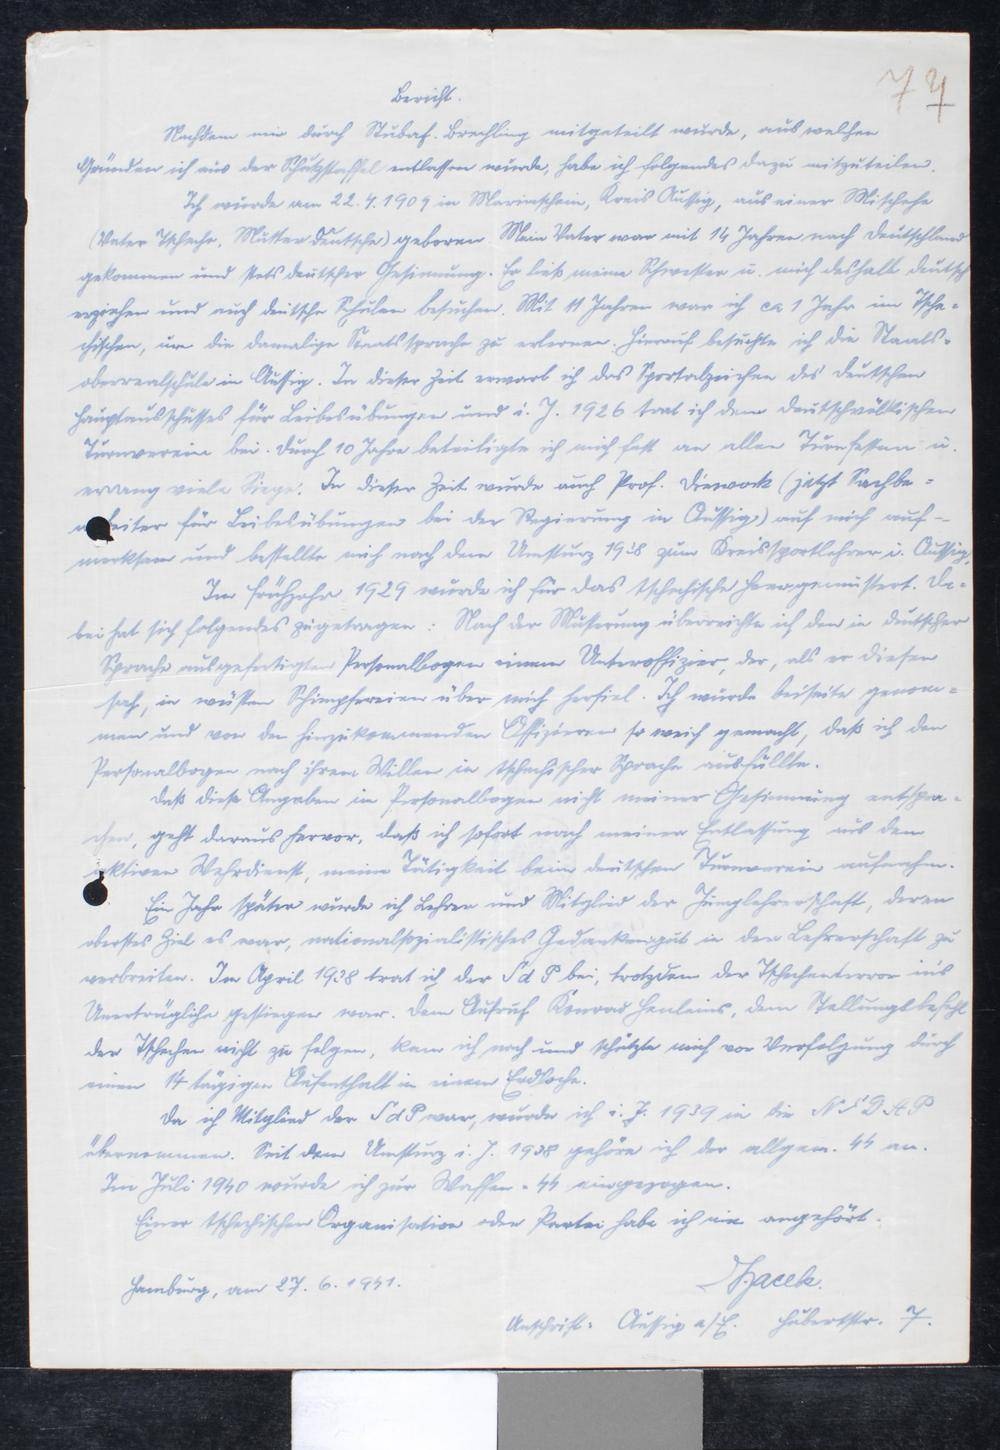 77
Bericht.
Nachdem mir durch Stubaf. Brechling mitgeteilt wurde, aus welchen
Gründen ich aus der Schutzstaffel entlassen wurde, habe ich folgendes dazu mitzuteilen.
Ich wurde am 22.4.1909 in Mariaschein, Kreis Aussig, aus einer Mischehe
(Vater Tscheche, Mutter Deutsche) geboren. Mein Vater war mit 14 Jahren nach Deutschland
gekommen und stets deutscher Gesinnung. Er ließ meine Schwester u. mich deshalb deutsch
erziehen und auch deutsche Schulen besuchen. Mit 11 Jahren war ich ca 1 Jahr im Tsche-
chischen, um die damalige Staatssprache zu erlernen. Hierauf besuchte ich die Staats-
oberrealschule in Aussig. In dieser Zeit erwarb ich das Sportabzeichen des deutschen
Hauptausschusses für Leibesübungen und i. J. 1926 trat ich dem deutschvölkischen
Turnverein bei. Durch 10 Jahre beteiligte ich mich fast an allen Turnfesten u.
errang viele Siege. In dieser Zeit wurde auch Prof. Diewock (jetzt Sachbe-
arbeiter für Leibesübungen bei der Regierung in Aussig) auf mich auf-
merksam und bestellte mich nach dem Umsturz 1938 zum Kreissportlehrer i. Aussig.
Im Frühjahr 1929 wurde ich für das tschechische Heer gemustert. Da-
bei hat sich folgendes zugetragen: Nach der Musterung überreichte ich den in deutscher
Sprache ausgefertigten Personalbogen einem Unteroffizier, der, als er diesen
sah, in wüsten Schimpfereien über mich herfiel. Ich wurde beiseite genom-
men und von den hinzukommenden Offizieren so weich gemacht, daß ich den
Personalbogen nach ihrem Willen in tschechischer Sprache ausfüllte.
Daß diese Angaben im Personalbogen nicht meiner Gesinnung entspra-
chen, geht daraus hervor, daß ich sofort nach meiner Entlassung aus dem
aktiven Wehrdienst, meine Tätigkeit beim deutschen Turnverein aufnahm.
Ein Jahr später wurde ich Lehrer und Mitglied der Junglehrerschaft, deren
oberstes Ziel es war, nationalsozialistisches Gedankengut in der Lehrerschaft zu
verbreiten. Im April 1938 trat ich der SdP bei, trotzdem der Tschechenterror ins
Unerträgliche gestiegen war. Dem Aufruf Konrad Henleins, dem Stellungsbefehl
der Tschechen nicht zu folgen, kam ich nach und schützte mich vor Verfolgung durch
einen 14 tägigen Aufenthalt in einem Erdloche.
Da ich Mitglied der SdP war, wurde ich i. J. 1939 in die NSDAP
übernommen. Seit dem Umsturz i. J. 1938 gehöre ich der allgem. SS an.
Im Juli 1940 wurde ich zur Waffen-SS eingezogen.
Einer tschechischen Organisation oder Partei habe ich nie angehört.
Hamburg, am 27. 6. 1941.
Anschrift: Aussig a/E. Hubertstr. 7.